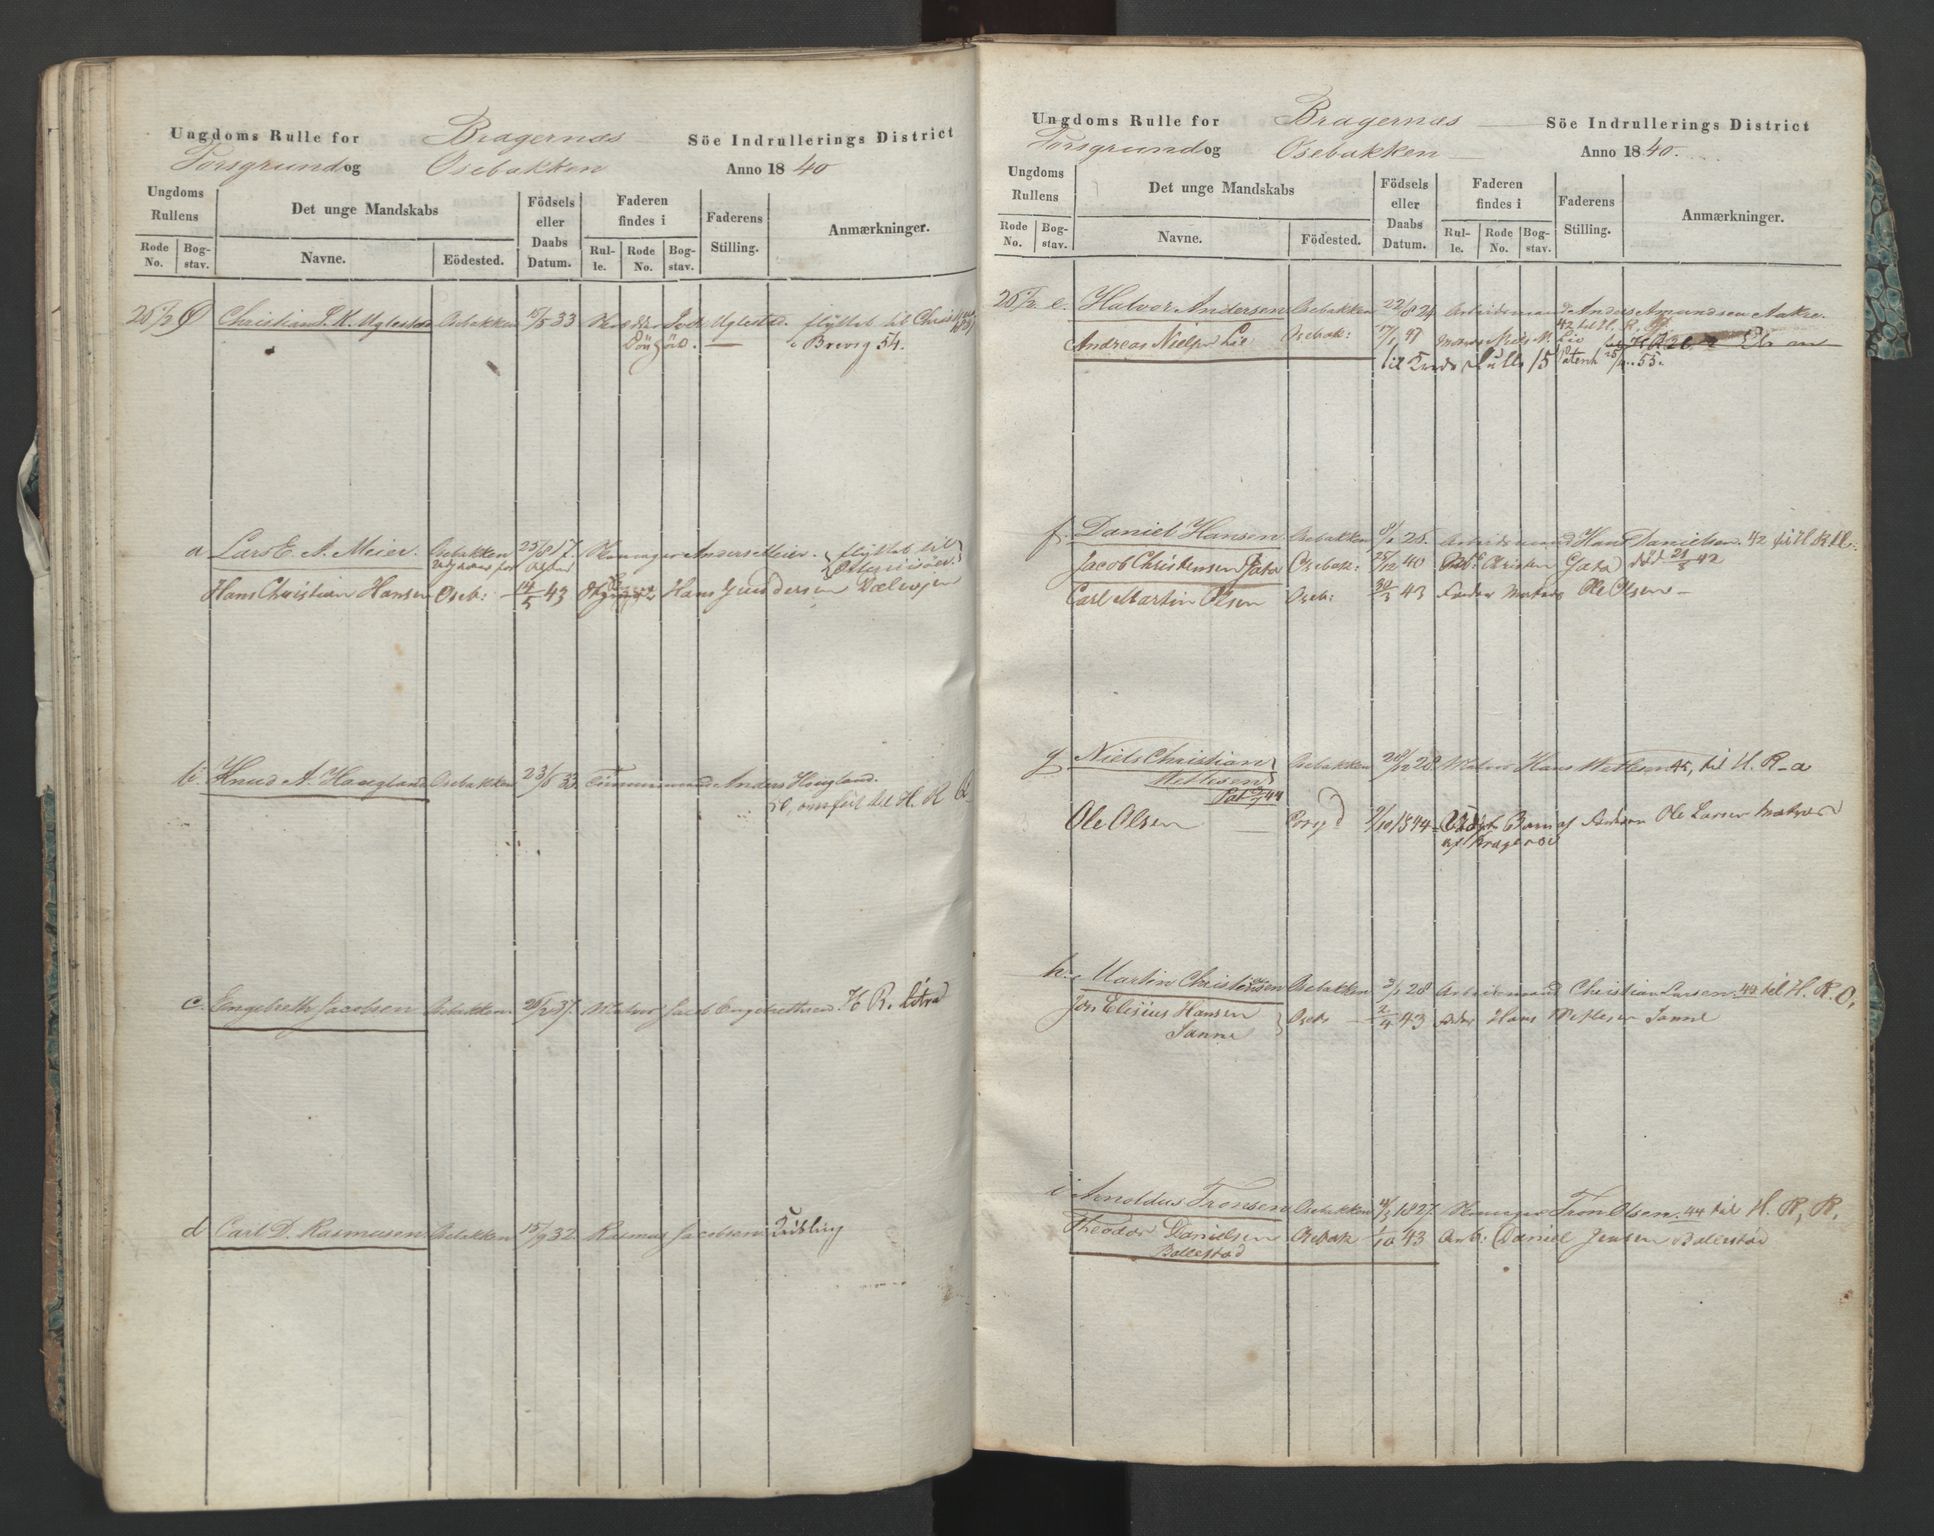 Ungdoms Rulle for Bragernæs Söe Indrullerings District
Porsgrund og Osebakken Anno 1840
Ungdoms Rullens
Det unge Mandskabs
Födsels eller Daabs Datum.
Faderen findes i
Faderens Stilling.
Anmærkninger.
Rode No.
Bogstav.
Navne.
Födested.
Rulle.
Rode No.
Bogstav.
Christian Uglestad Osebakken 33 Uglestad. flyttet til
i Brevig 54.
a Lars E. A. Meier. Osebakken 25/8 17. Anders Meier. flyttet til
Hans Christian Hansen Oseb: 14/5 43 Hans Gundersen
b. Knud A. Haugland Osebakken 33. Tømmermand Anders Hougland.
50, omført til H. R. Q
c. Engebreth Jacobsen Osebakken 26/2 37. Matros Jacob Engebrethsen H. R. litra
d Carl D. Rasmusen Osebakken 15/9 32. Rasmus Jacobsen Kübling
Ungdoms Rulle for Bragernæs Söe Indrullerings District
Porsgrund og Osebakken Anno 1840.
Ungdoms Rullens
Det unge Mandskabs
Födsels eller Daabs Datum.
Faderen findes i
Faderens Stilling.
Anmærkninger.
Rode No.
Bogstav.
Navne.
Födested.
Rulle.
Rode No.
Bogstav.
e. Halvor Andersen Osebakken 22/8 24 Arbeidsmand Anders Amundsen Aakre.
42 til H. R.
Andreas Nielsen Lie Osebak: 17/1 41 Niels N. Lio
til Rulle 15 Patent 55.
f. Daniel Hansen Osebakken 8/1 25 Arbeidsmand Hans Danielsen. 42 til H. R.
Jacob Christensen Gata Osebak: 25/12 40 Christen Gata död 21/5 42
Carl Martin Olsen Oseb: 30/3 43 Fader Matros Ole Olsen
g Niels Christian Osebakken 28/12 28 Matros Hans Wetlesen 45, til H. R. a
Wetlesen
Pat 44
Ole Olsen Porsgd 9/10 1844 Barn af Ole Larsen Matros
af Kragerøe
h. Martin Christensen Osebakken 3/1 28 Arbeidsmand Christian Larsen. 44 til H. R. O,
Jon Elisius Hansen Oseb 2/4 43 Hans Wetlesen Sanne
Sanne
i Arnoldus Tronsen Osebakken 1827 Tron Olsen. 44 til H. R, R,
Theodor Danielsen Osebak 1/10 43 Arb: Daniel Jensen Ballestad
Ballestad